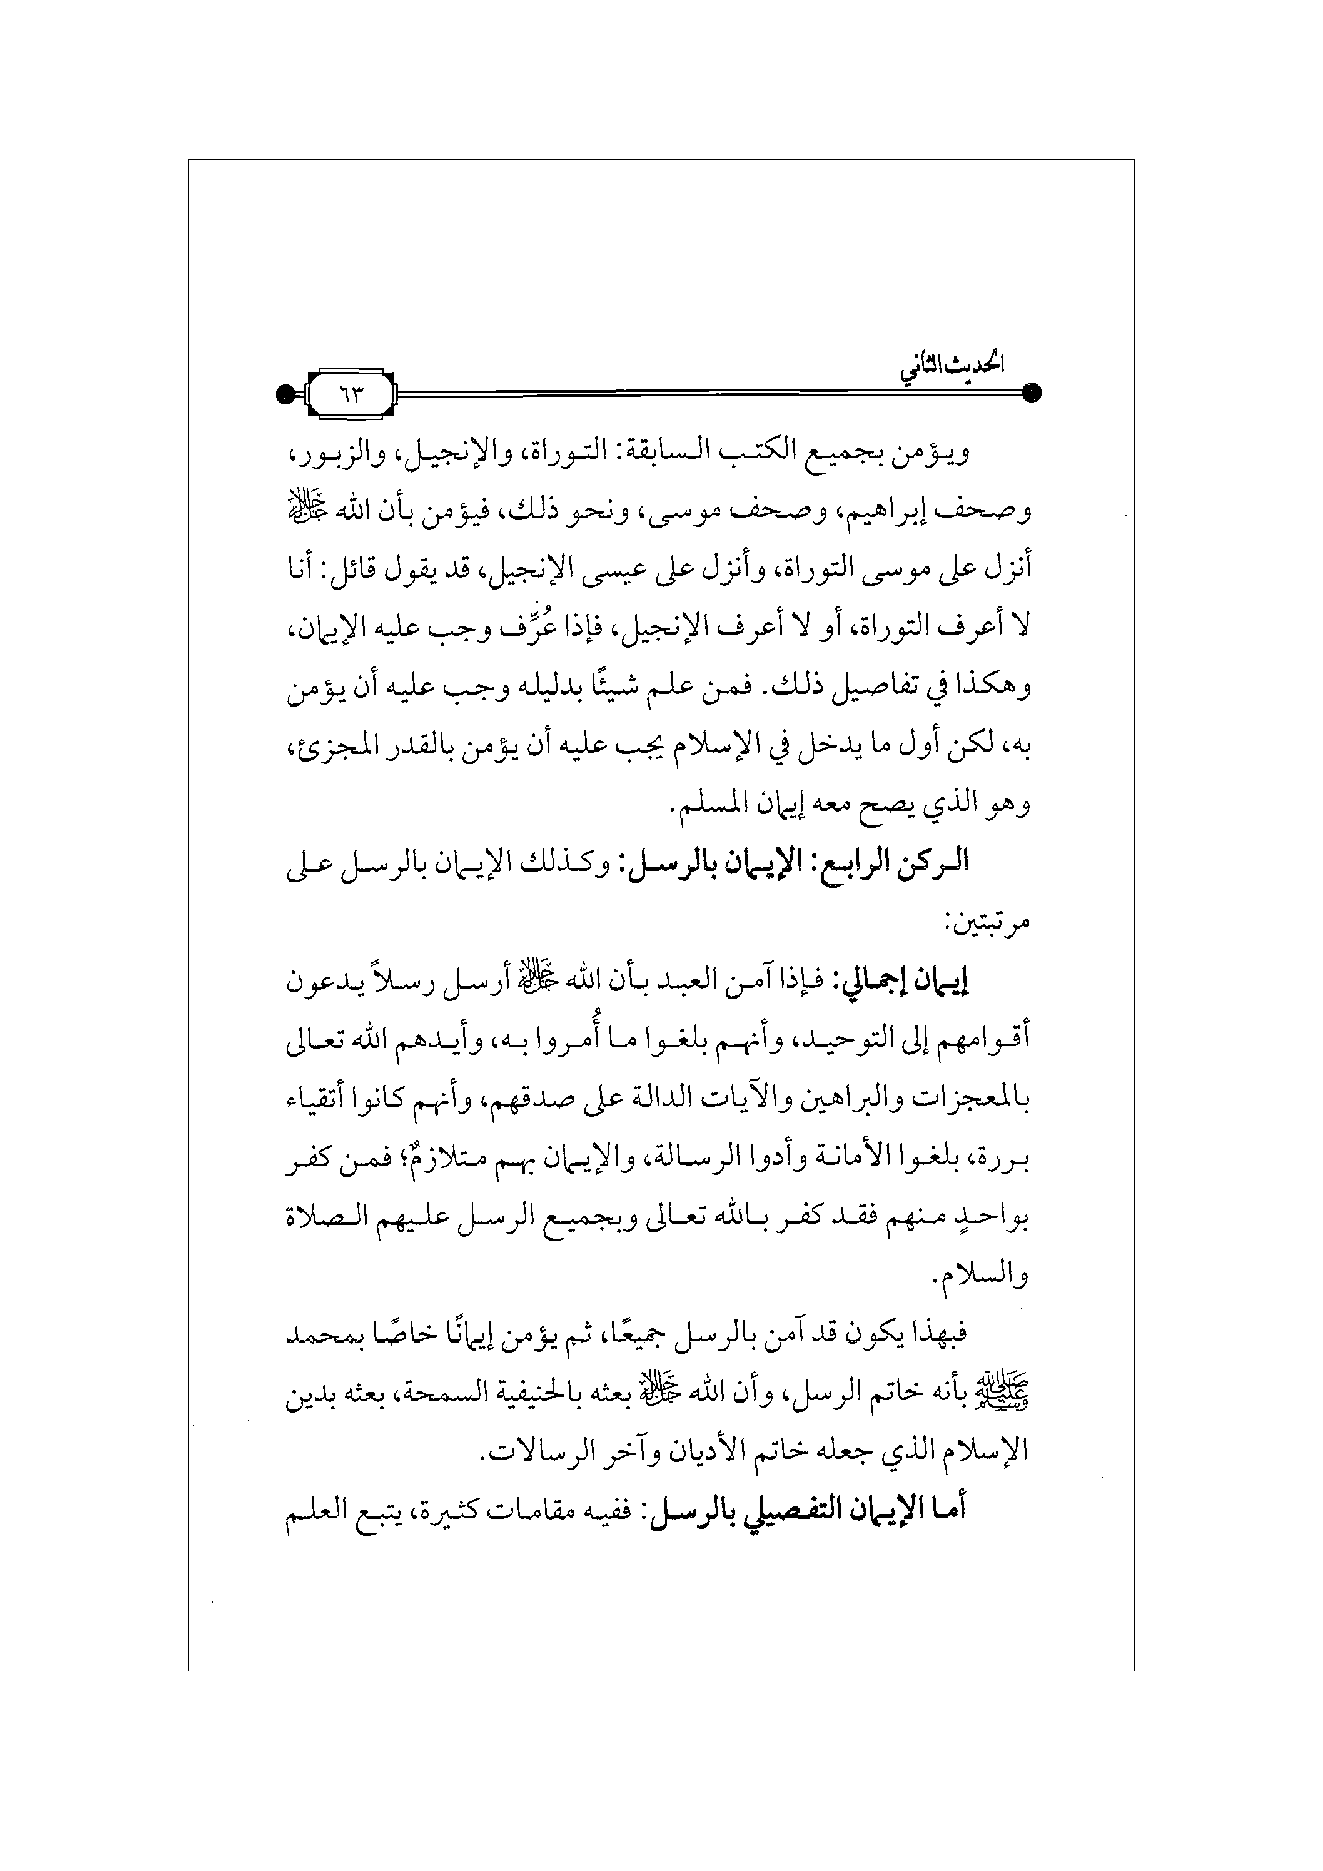 الحديث الثاني
٦٣
ويؤمن بجميع الكتب السابقة: التوراة، والإنجيل، والزبور،
وصحف إبراهيم، وصحف موسى، ونحو ذلك، فيؤمن بأن الله ﷻ
أنزل على موسى التوراة، وأنزل على عيسى الإنجيل، قد يقول قائل: أنا
لا أعرف التوراة، أو لا أعرف الإنجيل، فإذا عُرِّف وجب عليه الإيمان،
وهكذا في تفاصيل ذلك. فمن علم شيئًا بدليله وجب عليه أن يؤمن
به، لكن أول ما يدخل في الإسلام يجب عليه أن يؤمن بالقدر المجزئ،
وهو الذي يصح معه إيمان المسلم.
الركن الرابع: الإيمان بالرسل: وكذلك الإيمان بالرسل على
مرتبتين:
إيمان إجمالي: فإذا آمن العبد بأن الله ﷻ أرسل رسلاً يدعون
أقوامهم إلى التوحيد، وأنهم بلغوا ما أُمروا به، وأيدهم الله تعالى
بالمعجزات والبراهين والآيات الدالة على صدقهم، وأنهم كانوا أتقياء
بررة، بلغوا الأمانة وأدوا الرسالة، والإيمان بهم متلازمٌ؛ فمن كفر
بواحدٍ منهم فقد كفر بالله تعالى وبجميع الرسل عليهم الصلاة
والسلام.
فبهذا يكون قد آمن بالرسل جميعًا، ثم يؤمن إيمانًا خاصًا بمحمد
ﷺ بأنه خاتم الرسل، وأن الله ﷻ بعثه بالحنيفية السمحة، بعثه بدين
الإسلام الذي جعله خاتم الأديان وآخر الرسالات.
أما الإيمان التفصيلي بالرسل: ففيه مقامات كثيرة، يتبع العلم